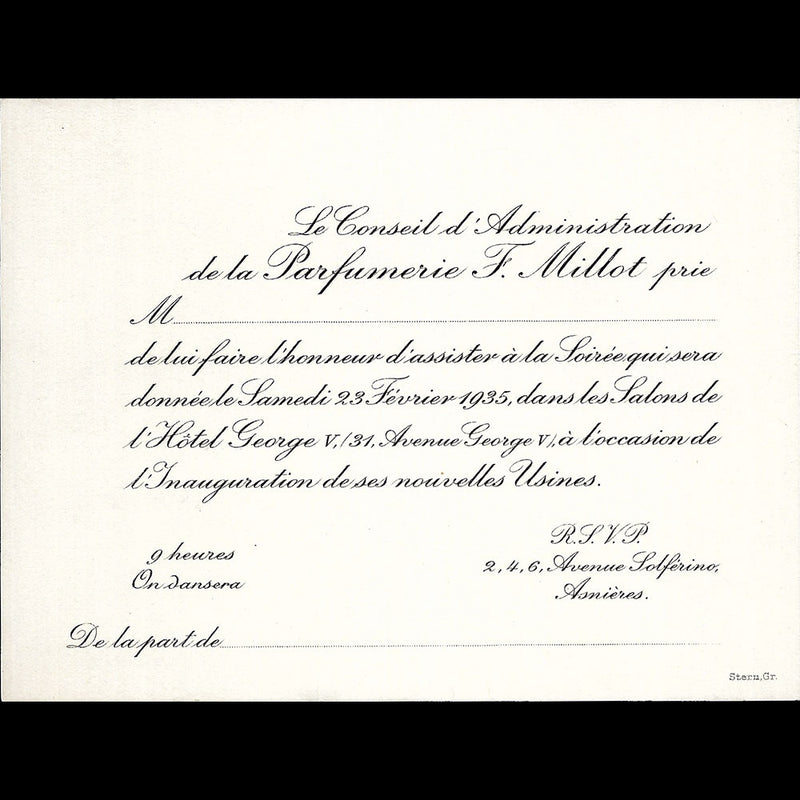 Le Conseil d'Administration
de la Parfumerie F. Millot prie
M
de lui faire l'honneur d'assister à la Soirée qui sera
donnée le Samedi 23 Février 1935, dans les Salons de
l'Hôtel George V, (31, Avenue George V), à l'occasion de
l'Inauguration de ses nouvelles Usines.
9 heures
On dansera
R.S.V.P.
2, 4, 6, Avenue Solférino,
Asnières.
De la part de
Stern, Gr.